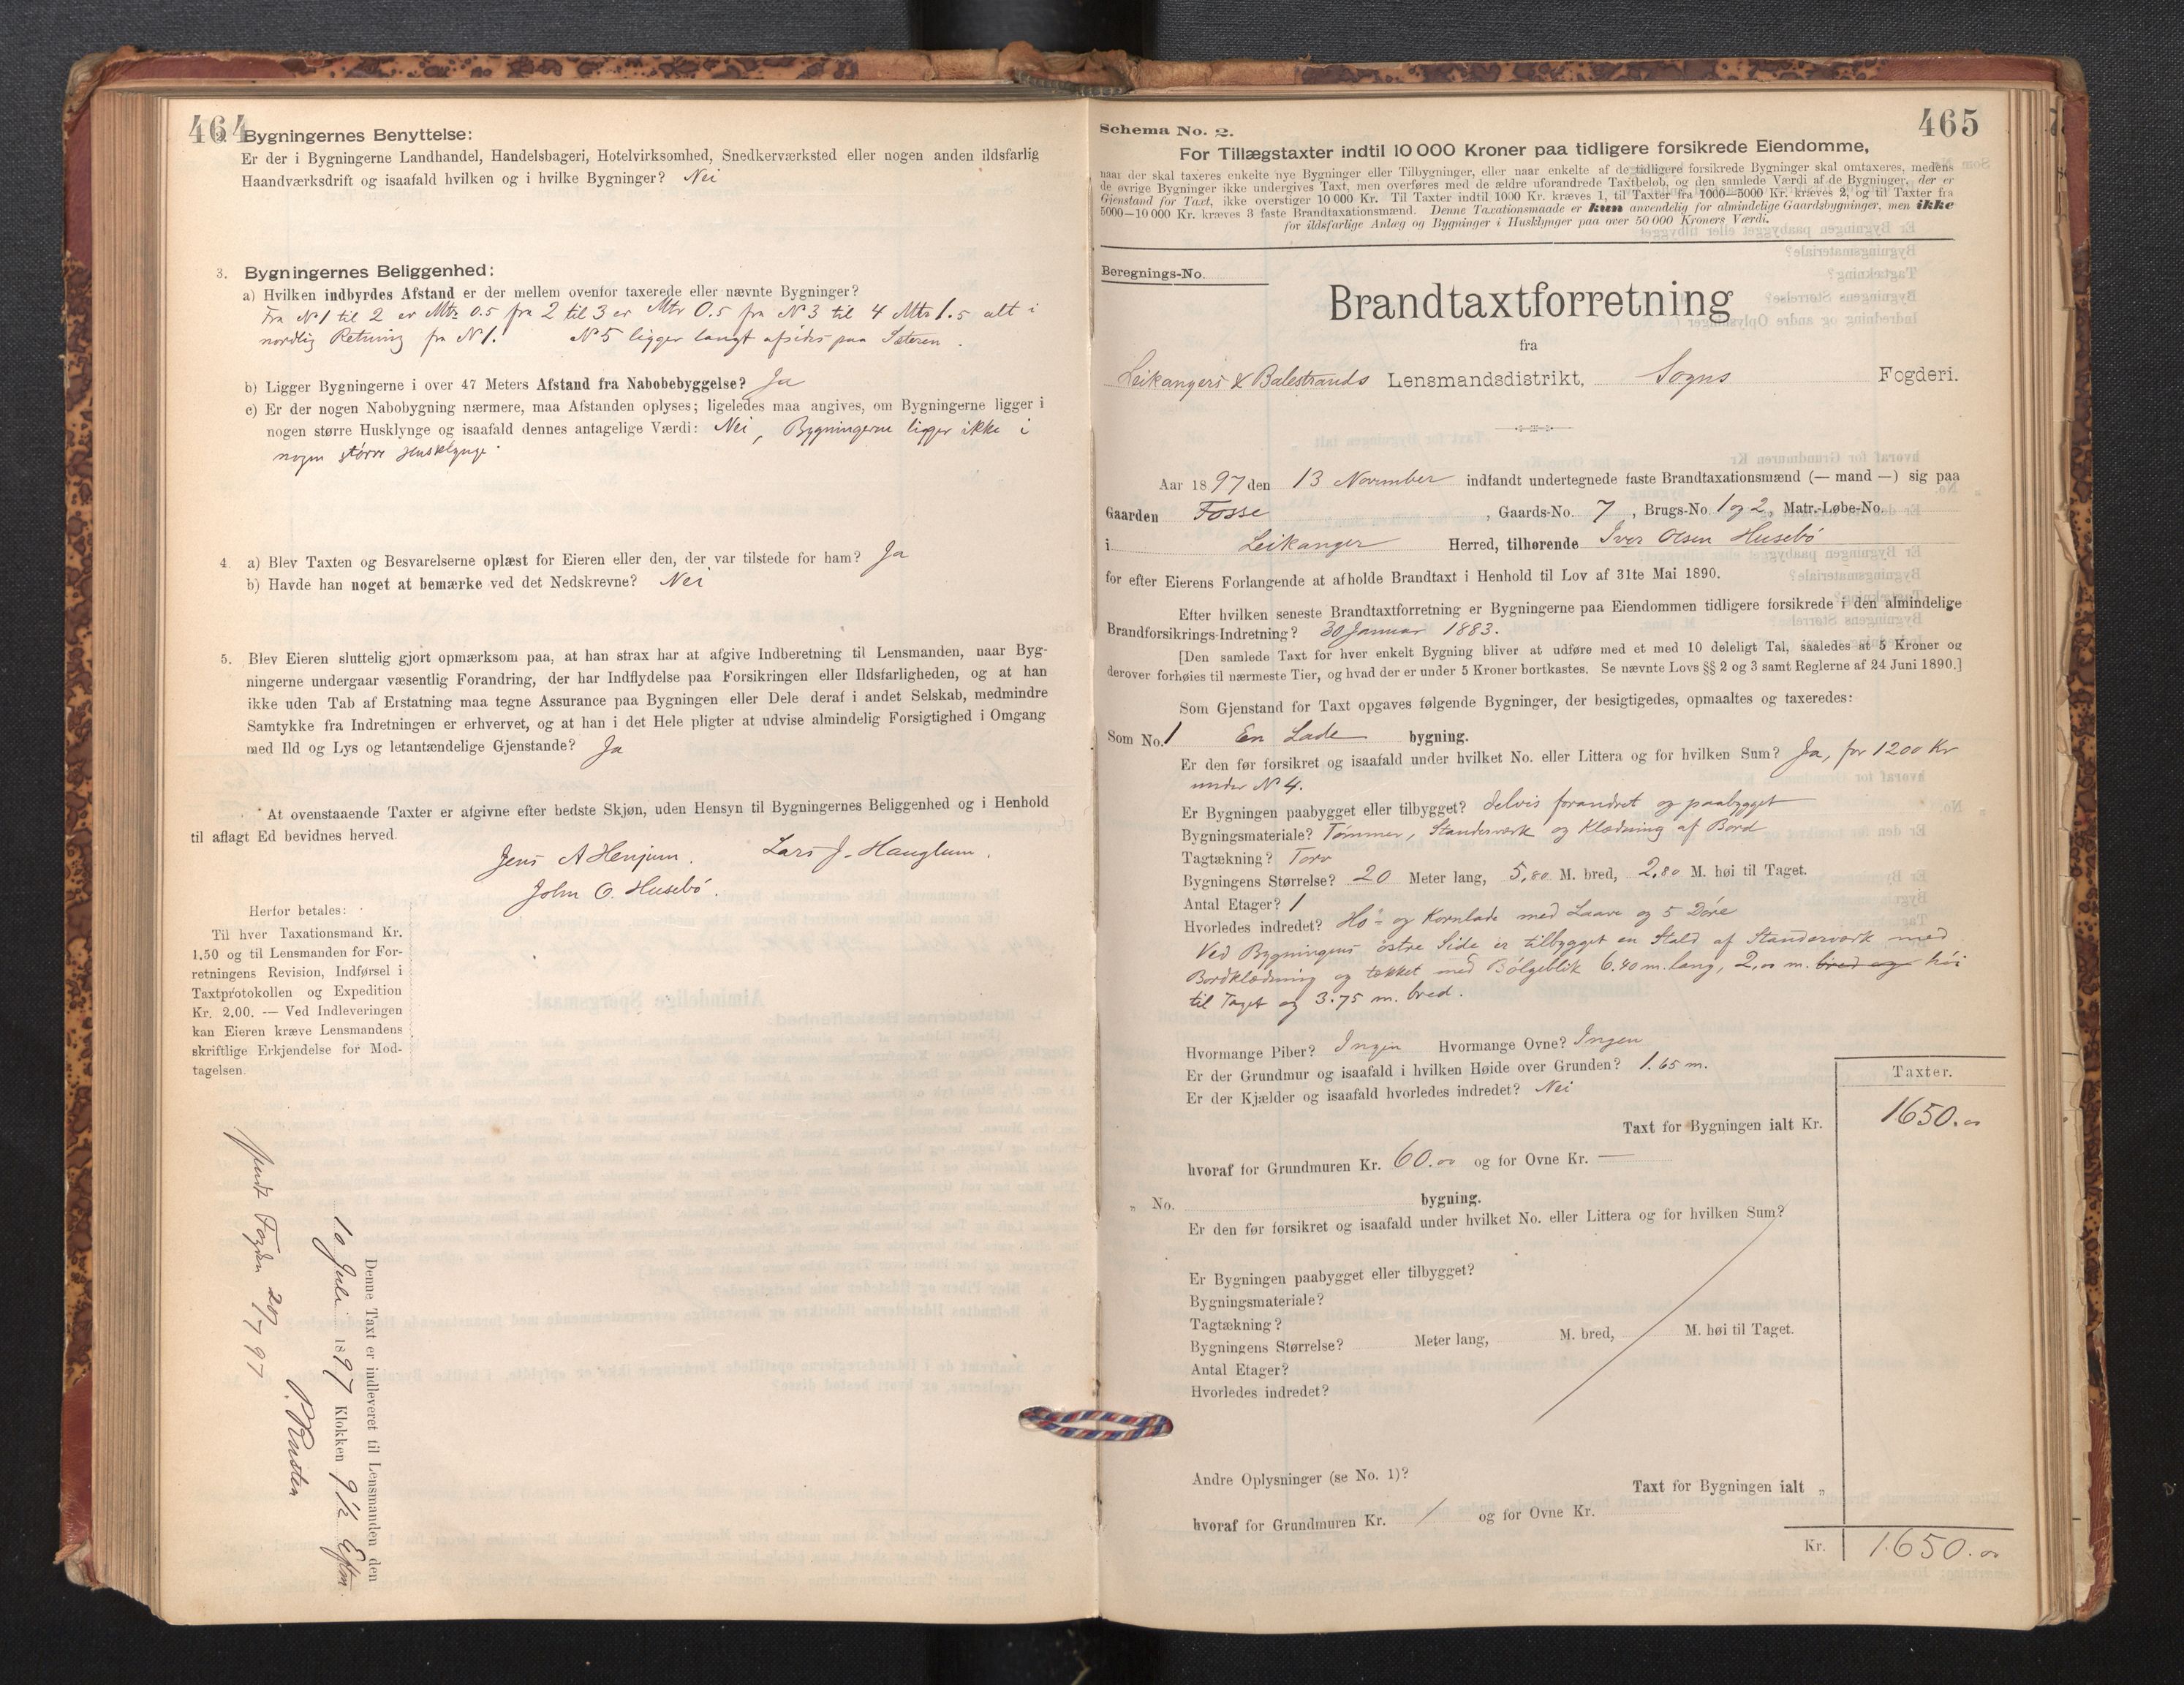 464
2. Bygningernes Benyttelse:
Er der i Bygningerne Landhandel, Handelsbageri, Hotelvirksomhed, Snedkerværksted eller nogen anden ildsfarlig
Haandværksdrift og isaafald hvilken og i hvilke Bygninger? Nei
3. Bygningernes Beliggenhed:
a) Hvilken indbyrdes Afstand er der mellem ovenfor taxerede eller nævnte Bygninger?
Fra No 1 til 2 er Mtr 0.5 fra 2 til 3 er Mtr 0.5 fra No 3 til 4 Mtr 1.5 alt i
nordlig Retning fra No 1. No 5 ligger langt afsides paa Sæteren.
b) Ligger Bygningerne i over 47 Meters Afstand fra Nabobebyggelse? Ja
c) Er der nogen Nabobygning nærmere, maa Afstanden oplyses; ligeledes maa angives, om Bygningerne ligger i
nogen større Husklynge og isaafald dennes antagelige Værdi: Nei, Bygningerne ligger ikke i
nogen større Husklynge.
4. a) Blev Taxten og Besvarelserne oplæst for Eieren eller den, der var tilstede for ham? Ja
b) Havde han noget at bemærke ved det Nedskrevne? Nei
5. Blev Eieren sluttelig gjort opmærksom paa, at han strax har at afgive Indberetning til Lensmanden, naar Byg-
ningerne undergaar væsentlig Forandring, der har Indflydelse paa Forsikringen eller Ildsfarligheden, og at han
ikke uden Tab af Erstatning maa tegne Assurance paa Bygningen eller Dele deraf i andet Selskab, medmindre
Samtykke fra Indretningen er erhvervet, og at han i det Hele pligter at udvise almindelig Forsigtighed i Omgang
med Ild og Lys og letantændelige Gjenstande? Ja
At ovenstaaende Taxter er afgivne efter bedste Skjøn, uden Hensyn til Bygningernes Beliggenhed og i Henhold
til aflagt Ed bevidnes herved
Jens A Henjum. Lars J. Hauglum.
John O. Husebö.
Herfor betales:
Til hver Taxationsmand Kr.
1.50 og til Lensmanden for For-
retningens Revision, Indførsel i
Taxtprotokollen og Expedition
Kr. 2.00. — Ved Indleveringen
kan Eieren kræve Lensmandens
skriftlige Erkjendelse for Mod-
tagelsen.
Denne Taxt er indleveret til Lensmanden den
10 Juli 1897 Klokken 9 1/2 Eftm.
Sendt Fogden 20/7 97
465
Schema No. 2.
For Tillægstaxter indtil 10 000 Kroner paa tidligere forsikrede Eiendomme,
naar der skal taxeres enkelte nye Bygninger eller Tilbygninger, eller naar enkelte af de tidligere forsikrede Bygninger skal omtaxeres, medens
de øvrige Bygninger ikke undergives Taxt, men overføres med de ældre uforandrede Taxtbeløb, og den samlede Værdi af de Bygninger, der er
Gjenstand for Taxt, ikke overstiger 10 000 Kr. Til Taxter indtil 1000 Kr. kræves 1, til Taxter fra 1000—5000 Kr. kræves 2, og til Taxter fra
5000—10 000 Kr. kræves 3 faste Brandtaxationsmænd. Denne Taxationsmaade er kun anvendelig for almindelige Gaardsbygninger, men ikke
for ildsfarlige Anlæg og Bygninger i Husklynger paa over 50 000 Kroners Værdi.
Beregnings-No.
Brandtaxtforretning
fra
Leikangers & Balestrands Lensmandsdistrikt, Sogns Fogderi.
Aar 1897 den 13 November indfandt undertegnede faste Brandtaxationsmænd (— mand —) sig paa
Gaarden Fosse, Gaards-No. 7, Brugs-No. 1 og 2, Matr.-Løbe-No.
i Leikanger Herred, tilhørende Iver Olsen Husebö
for efter Eierens Forlangende at afholde Brandtaxt i Henhold til Lov af 31te Mai 1890.
Efter hvilken seneste Brandtaxtforretning er Bygningerne paa Eiendommen tidligere forsikrede i den almindelige
Brandforsikrings-Indretning? 30 Januar 1883.
[Den samlede Taxt for hver enkelt Bygning bliver at udføre med et med 10 deleligt Tal, saaledes at 5 Kroner og
derover forhøies til nærmeste Tier, og hvad der er under 5 Kroner bortkastes. Se nævnte Lovs §§ 2 og 3 samt Reglerne af 24 Juni 1890.]
Som Gjenstand for Taxt opgaves følgende Bygninger, der besigtigedes, opmaaltes og taxeredes:
Som No. 1 En Lade bygning.
Er den før forsikret og isaafald under hvilket No. eller Littera og for hvilken Sum? Ja, for 1200 Kr
under No 4.
Er Bygningen paabygget eller tilbygget? delvis forandret og paabygget
Bygningsmateriale? Tømmer, Standerværk og Klædning af Bord
Tagtækning? Torv
Bygningens Størrelse? 20 Meter lang, 5,80 M. bred, 2,80 M. høi til Taget.
Antal Etager? 1
Hvorledes indredet? Hø- og Kornlade med Laave og 5 Døre
Ved Bygningens østre Side er tilbygget en Stald af Standerværk med
Bordklædning og tækket med Bølgeblik 6.40 m. lang, 2,00 m. bred og høi
til Taget og 3.75 m. bred.
Hvormange Piber? Ingen Hvormange Ovne? Ingen
Er der Grundmur og isaafald i hvilken Høide over Grunden? 1.65 m.
Er der Kjælder og isaafald hvorledes indredet? Nei
Taxter.
Taxt for Bygningen ialt Kr. 1650.00
hvoraf for Grundmuren Kr. 60.00 og for Ovne Kr. —
„ No. bygning.
Er den før forsikret og isaafald under hvilket No. eller Littera og for hvilken Sum?
Er Bygningen paabygget eller tilbygget?
Bygningsmateriale?
Tagtækning?
Bygningens Størrelse? Meter lang, M. bred, M. høi til Taget.
Antal Etager?
Hvorledes indredet?
Andre Oplysninger (se No. 1)?
Taxt for Bygningen ialt „
hvoraf for Grundmuren Kr. / og for Ovne Kr.
Kr. 1650.00